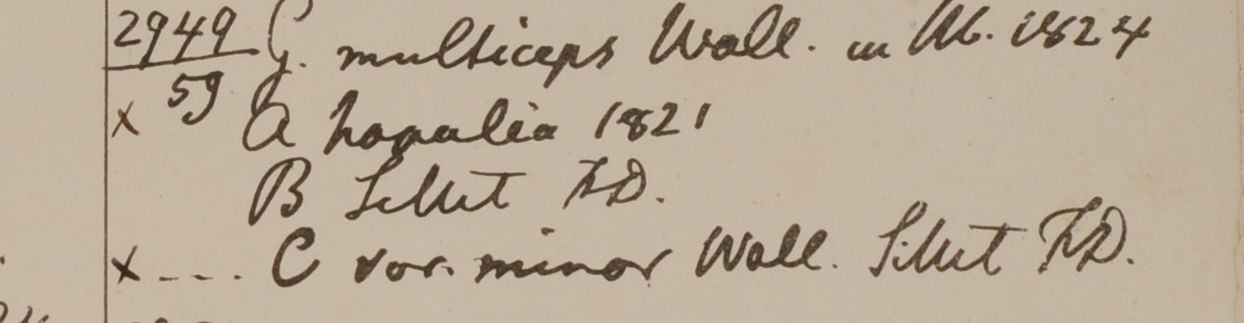 2949 G. multiceps Wall. in Hb. 1824
59
x A Napalia 1821
B Sillet F.D.
x --- C var. minor Wall. Sillet F.D.